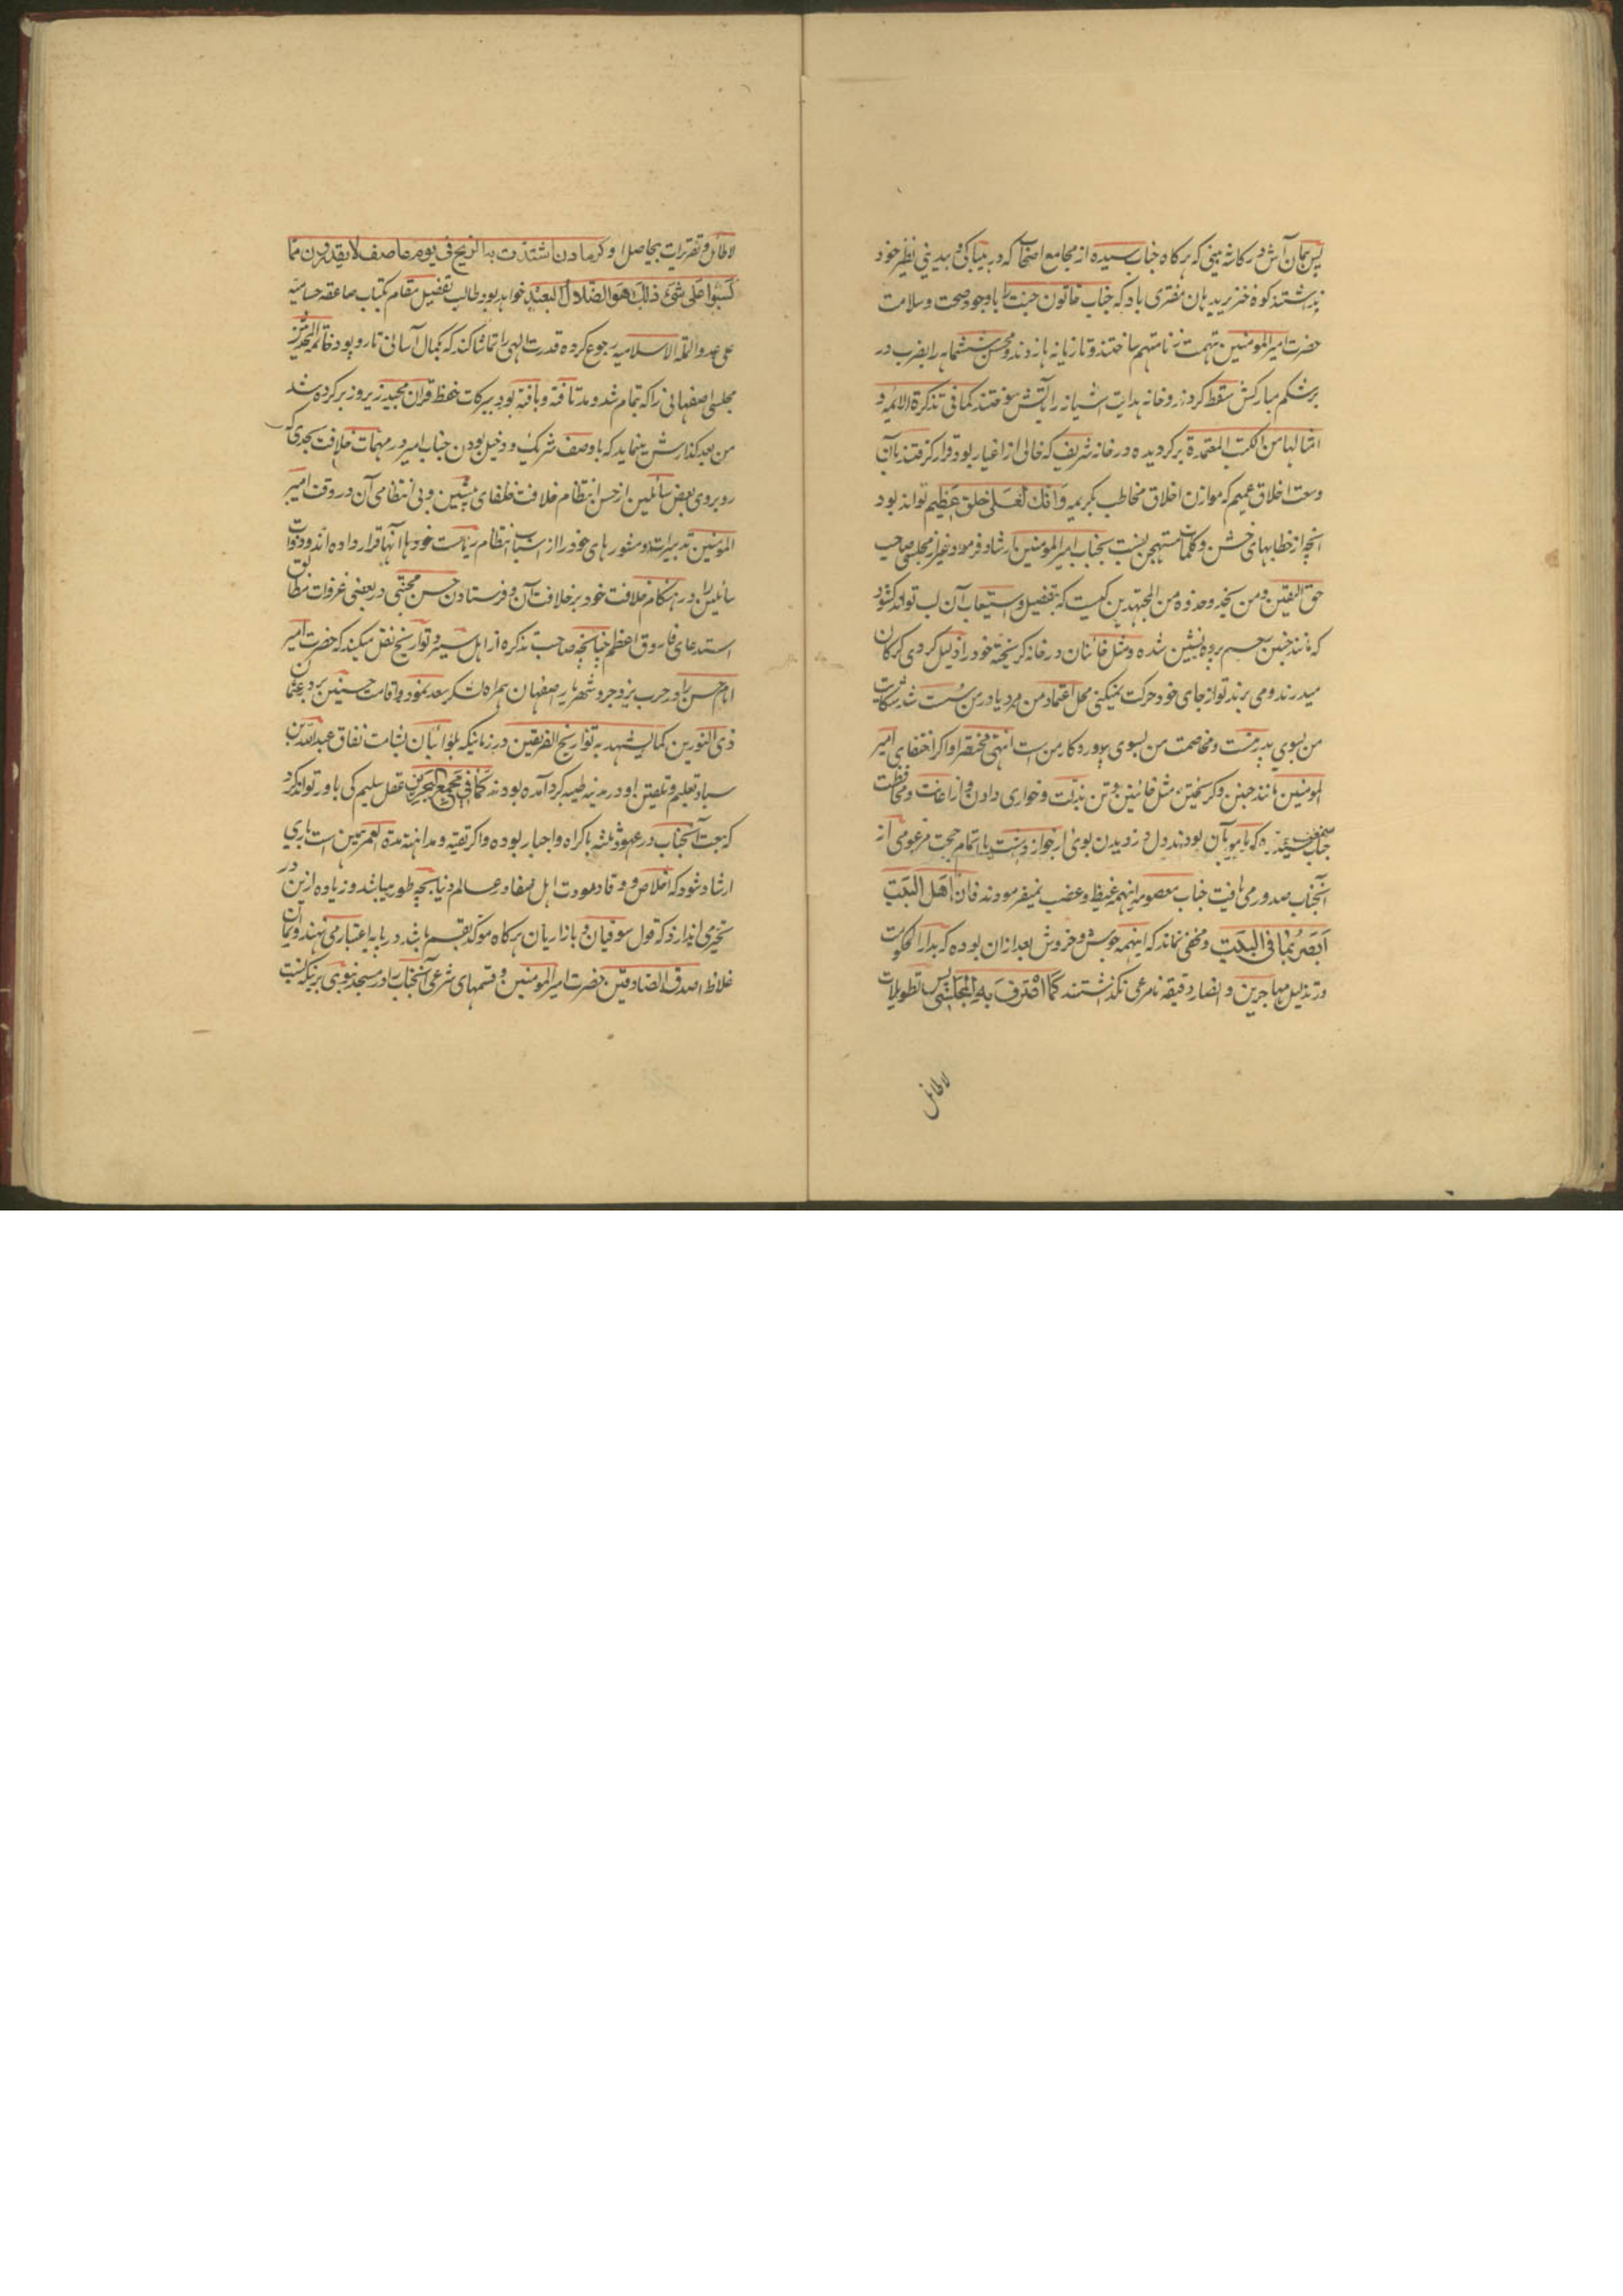 پس همان آش در کاسه بینی که هرکاه جناب سیده از مجامع اصحاب که در بیباکی و بیدینی نظیر خود
نداشتند کوه خنزیریدهان مفتری باد که جناب خاتون جنت را باوجود صحت و سلامت
حضرت امیر المومنین بتهمت زنا متهم ساختند و تازیانه ها زدند و محسن ششماهه را بضرب در
برشکم مبارکش سقط کردند و خانه هدایت آشیانه را بآتش سوختند کما فی تذکرة الائمه و
امثالها من الکتب المعتمدة برکردیده در خانه شریف که خالی از اغیار بود قرار کرفتند بآن
وسعت اخلاق عمیم که موازن اخلاق مخاطب بکریمه وَاِنَّکَ لَعَلی خلق عَظیم تواند بود
آنچه از خطابهای خشن و کلمات مستهجن بنسبت بجناب امیر المومنین ارشاد فرمود و غیر از مجلسی صاحب
حق الیقین و من یحذو حذوه من المجتهدین کیست که بتفصیل و استیعاب آن لب تواند کشود
که مانند جنین رحم پرده نشین شده و مثل خائنان در خانه کریخته خود را ذلیل کردی کرکان
میدرند و می برند تو از جای خود حرکت نمیکنی محل اعتماد من مرد یاور من سست شد شکایت
من بسوی پدر منست و مخاصمت من بسوی پرورد کار من ست انتهی مختصرا و اکر اختفای امیر
المومنین مانند جنین و کریختن مثل خائنین و تن بذلت و خواری دادن و از اعانت و محافظت
جناب سیده که مامور بآن بودند دل دزدیدن بوی از جواز داشت یا تمام حجت مزعومی از
آنجناب صدور می یافت جناب معصومه اینهمه غیظ و غضب نمیفرمودند فان اَهل البَیت
اَبصَرُ بما فی البَیت و مخفی نماند که اینهمه جوش و خروش بعد ازان بوده که بدار الحکومت
در تذلیل مهاجرین و انصار دقیقه نامرعی نکذاشتند کَمَا اعترَفَ بِهِ المجلسی پس تطویلات
لاطائل
لاطائل و تقریرات بیحاصل او کرمادن اشتدت به الریح فی یوم عاصف لایقدرون مما
کسَبُوا علی شئ ذلک هو الضلال البعید خواهد بود طالب تفصیل مقام بکتاب صاعقه حسامیه
علی عدو الملة الاسلامیه رجوع کرده قدرت الهی را تماشا کند که بکمال آسانی تاروپود خاتم المحدثین
مجلسی اصفهانی را که بتمام شد و مد تافته و بافته بود ببرکات حفظ قران مجید زیروزبر کرده شد
من بعد کذارش مینماید که باوصف شریک و دخیل بودن جناب امیر در مهمات خلافت بحدی که
روبروی بعض سائلین از حسن انتظام خلافت خلفای پیشین و بی انتظامی آن در وقت امیر
المومنین تدبیرات و مشورهای خود را از اسباب انتظام ریاست خود با آنها قرار داده اند و ذوات
سائلین را در هنکام خلافت خود بر خلافت آن و فرستادن حسن مجتبی در بعضی غزوات مطابق
استدعای فاروق اعظم چنانچه صاحب تذکره از اهل سیر و تواریخ نقل میکند که حضرت امیر
امام حسن را در حرب یزدجرد شهریار اصفهان همراه لشکر سعد نمود و اقامت حسنین بر در عثمان
ذی النورین کما یشهد به تواریخ الفریقین در زمانیکه بلوائیان بشامت نفاق عبدالله بن
سبا و تعلیم و تلقین او در مدینه طیبه کرد آمده بودند کَمَا فی مجمع البحرین عقل سلیم کی باور تواند کرد
که بیعت آنجناب در عهود ثلثه باکراه و اجبار بوده و اکر تقیه و مداهنه مدة العمر همین است باری
ارشاد شود که اخلاص و وداد و مودت اهل صفا در عالم دنیا بچه طور میباشد و زیاده ازین در
تحیر می اندازد که قول سوقیان و بازاریان هرکاه موکد بقسم باشد در پایه اعتبار می نهند و ایمان
غلاظ اصدق الصادقین حضرت امیر المومنین و قسمهای شرعی آنجناب را در مسجد نبوی بر نیکه نسبت